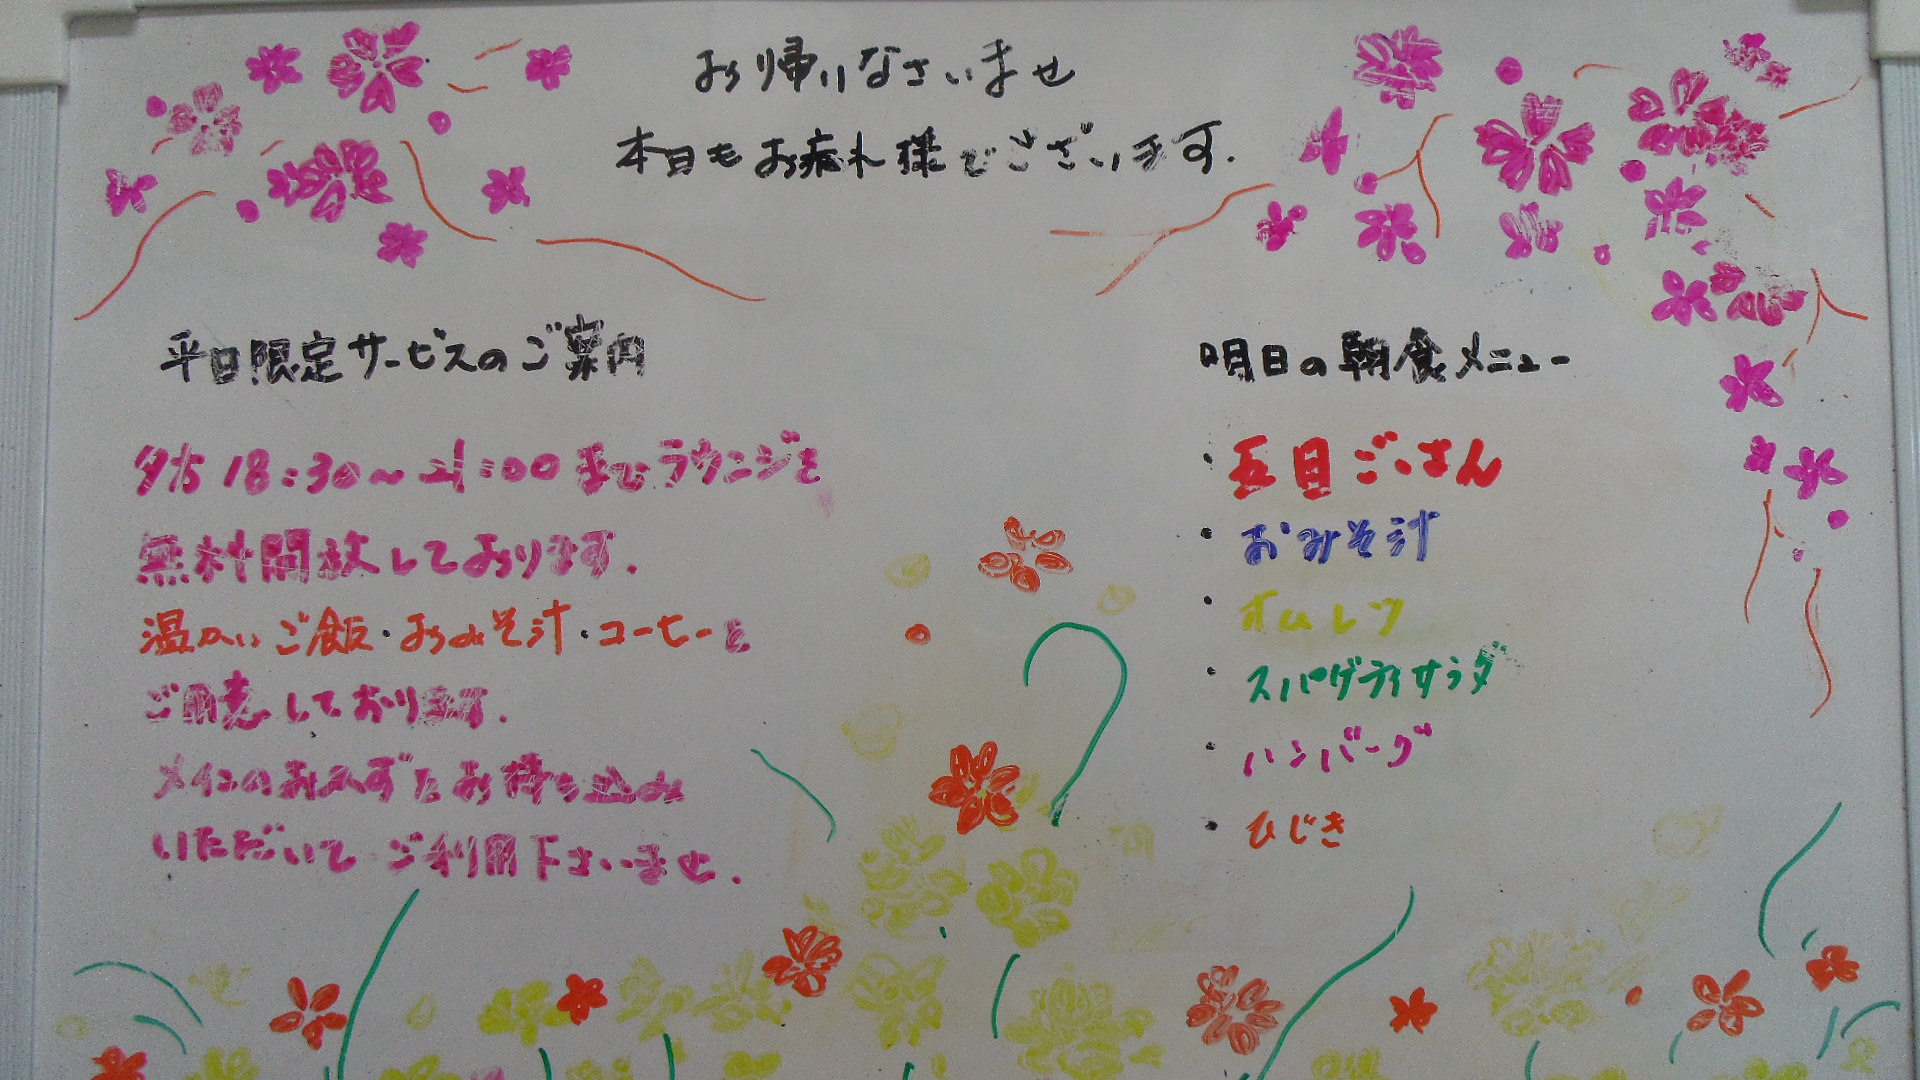 お帰りなさいませ
本日もお疲れ様でございます.
平日限定サービスのご案内
夕方 18:30～21:00 までラウンジを
無料開放しております.
温かいご飯・おみそ汁・コーヒーを
ご用意しております.
メインのおかずをお持ち込み
いただいて ご利用下さいませ.
明日の朝食メニュー
・五目ごはん
・おみそ汁
・オムレツ
・スパゲティサラダ
・ハンバーグ
・ひじき